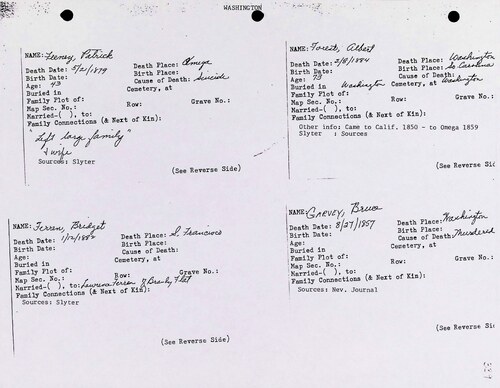 WASHINGTON
NAME: Feeney, Patrick
Death Date: 5/21/1879 Death Place: Omega
Birth Date: Birth Place:
Age: 43 Cause of Death: Suicide
Buried in Cemetery, at
Family Plot of:
Map Sec. No.: Row: Grave No.:
Married-( ), to:
Family Connections (& Next of Kin):
"Left large family"
& wife
Sources: Slyter
(See Reverse Side)
NAME: Forest, Albert
Death Date: 2/8/1884 Death Place: Washington
Birth Date: Birth Place: So Carolina
Age: 73 Cause of Death:
Buried in Washington Cemetery, at Washington
Family Plot of:
Map Sec. No.: Row: Grave No.:
Married-( ), to:
Family Connections (& Next of Kin):
Other info: Came to Calif. 1850 - to Omega 1859
Slyter : Sources
(See Reverse Sid
NAME: Ferren, Bridget
Death Date: Death Place: S. Francisco
Birth Date: Birth Place:
Age: Cause of Death:
Buried in Cemetery, at
Family Plot of:
Map Sec. No.: Row: Grave No.:
Married-( ), to: Lawrence Ferren of Brandy Flat
Family Connections (& Next of Kin):
Sources: Slyter
(See Reverse Side)
NAME: GARVEY, Bruce
Death Date: 8/27/1857 Death Place: Washington
Birth Date: Birth Place:
Age: Cause of Death: Murdered
Buried in Cemetery, at
Family Plot of:
Map Sec. No.: Row: Grave No.:
Married-( ), to:
Family Connections (& Next of Kin):
Sources: Nev. Journal
(See Reverse Si